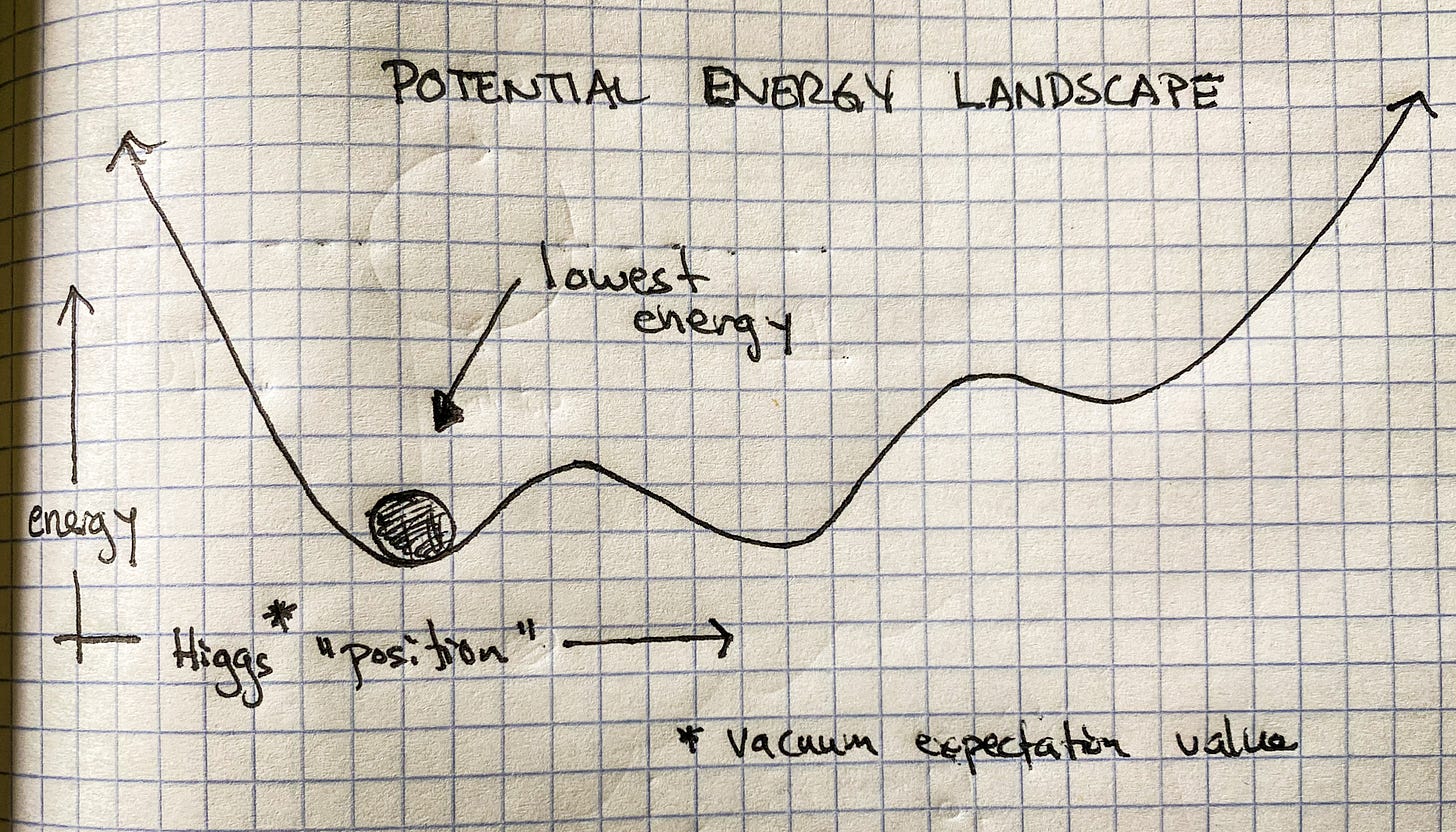 POTENTIAL ENERGY LANDSCAPE
lowest
energy
energy
Higgs* "position"
* vacuum expectation value